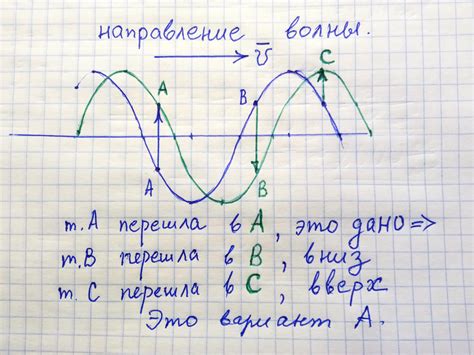 направление волны.
v̄
C
A
B
A
B
т. А перешла в А, это дано =>
т. В перешла в В, вниз
т. С перешла в С, вверх
Это вариант А.